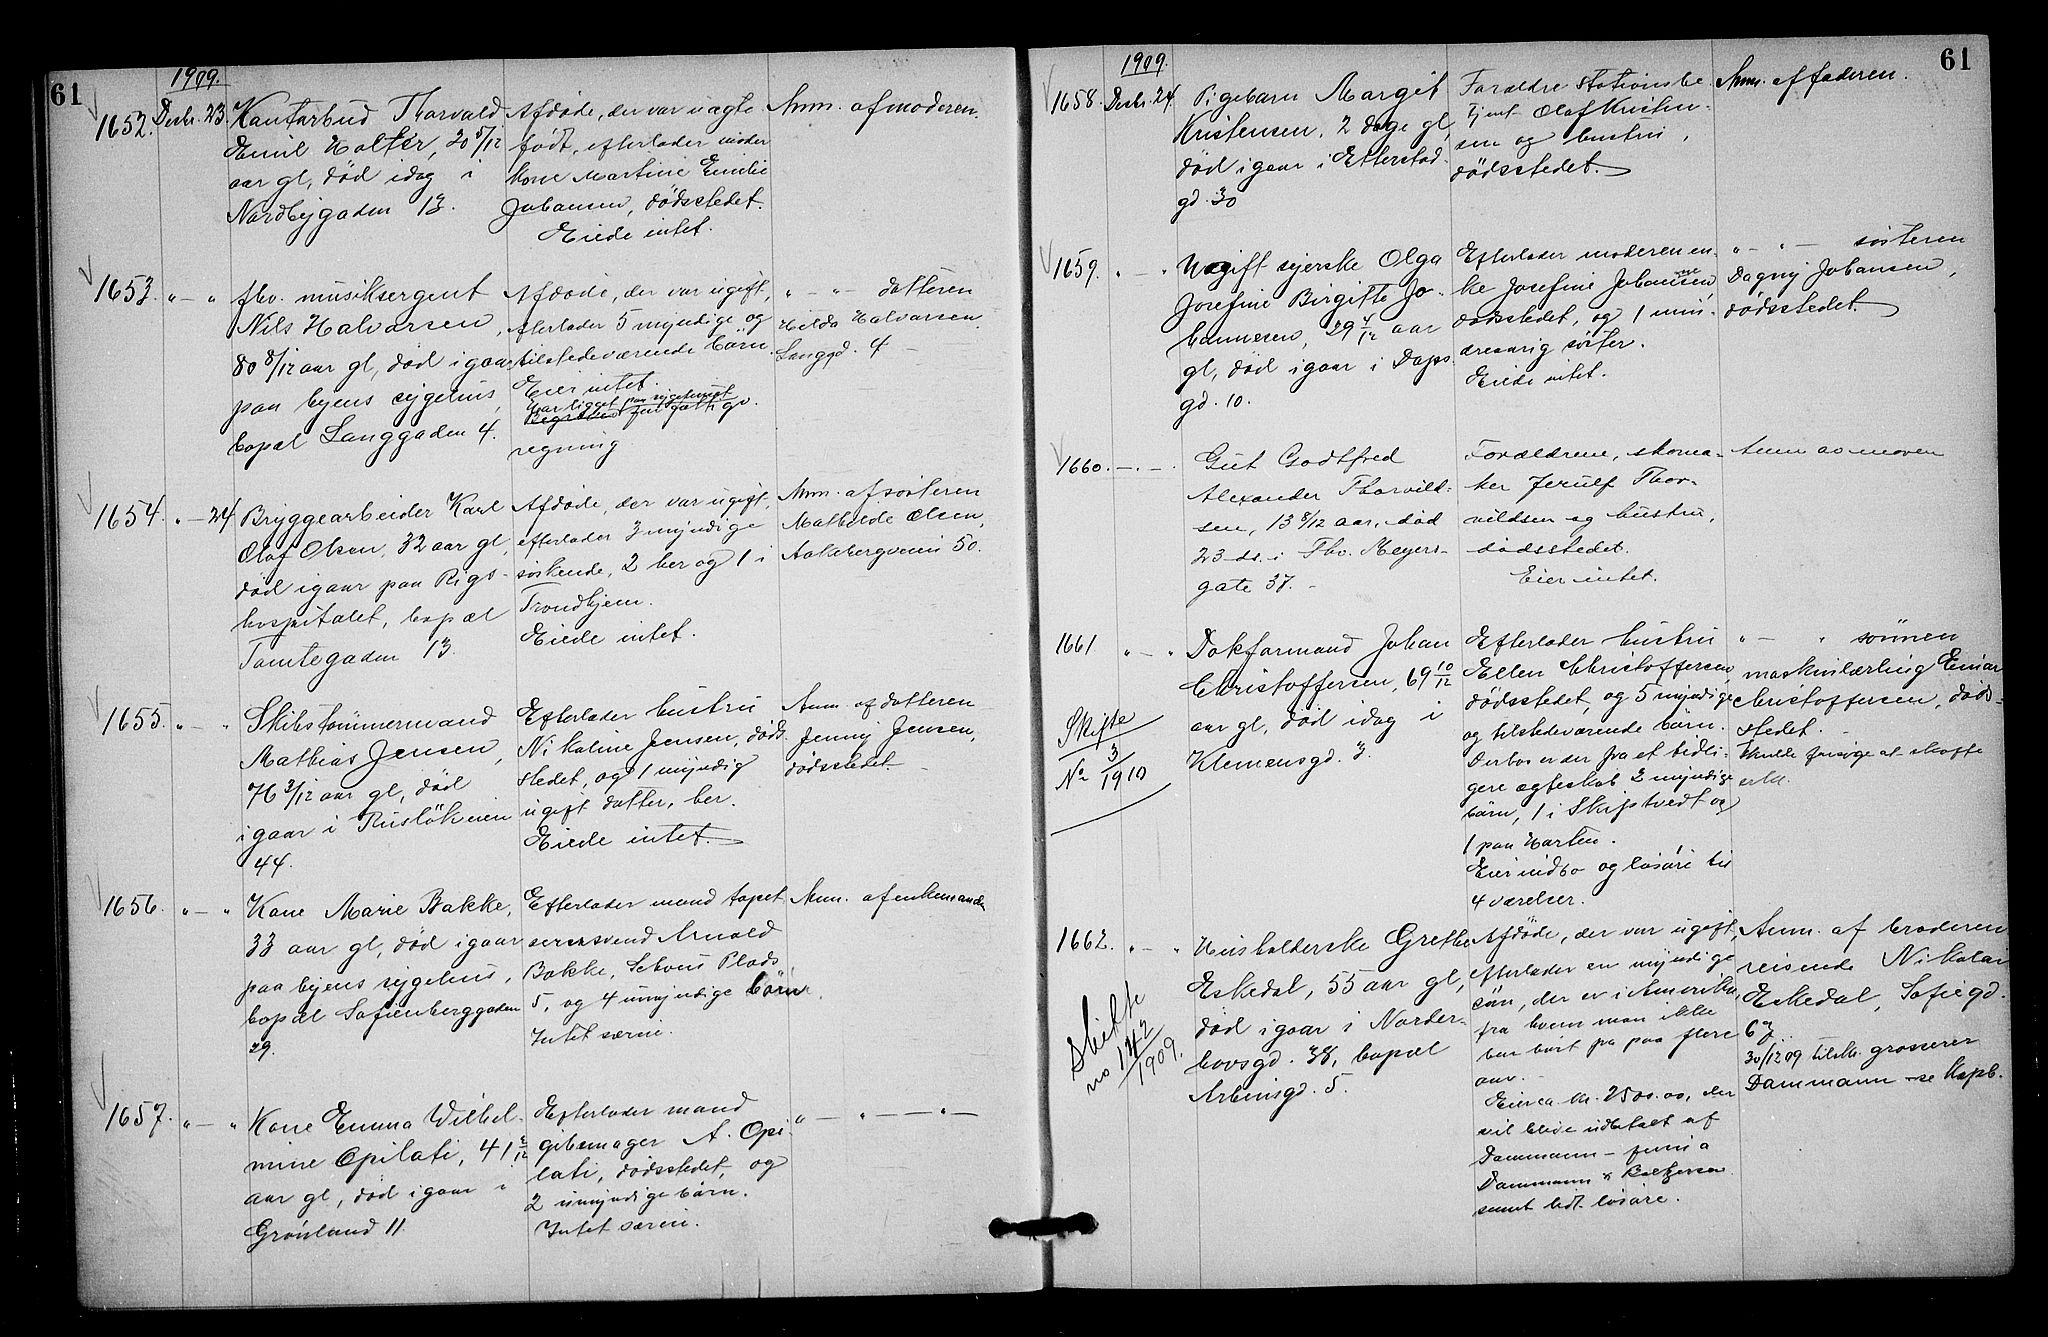 61
1909.
1652. Decbr. 23. Kontorbud Thorvald
Emil Holter, 20 5/12
aar gl, død idag i
Nordbygaden 13.
Afdøde, der var uægte
født, efterlader moder
kone Martine Emilie
Johansen, dødsstedet.
Eiede intet.
Anm. af moderen.
1653. " — " fhv. musiksergent
Nils Halvorsen,
80 8/12 aar gl, død igaar
paa byens sygehus,
bopæl Langgaden 4.
Afdøde, der var ugift,
efterlader 5 myndige og
tilstedeværende børn.
Eier intet.
Har ligget paa sygehuset
for fattigv.
regning
" " — datteren
Hilda Halvorsen,
Langgd. 4 —
1654. " — 24 Bryggearbeider Karl
Olaf Olsen, 32 aar gl,
død igaar paa Rigs-
hospitalet, bopæl
Tomtegaden 13.
Afdøde, der var ugift,
efterlader 3 myndige
søskende, 2 her og 1 i
Trondhjem.
Eiede intet.
Anm. af søsteren
Mathilde Olsen,
Aakebergveien 50.
1655. " — " Skibstømmermand
Mathias Jensen,
76 3/12 aar gl, død
igaar i Ruseløkveien
44.
Efterlader hustru
Nikoline Jensen, døds-
stedet, og 1 myndig
ugift datter, her.
Eiede intet.
Anm. af datteren
Jenny Jensen,
dødsstedet. —
1656. " — " Kone Marie Bakke,
33 aar gl, død igaar
paa byens sygehus,
bopæl Sofienberggaden
29.
Efterlader mand tapet-
serersvend Arnold
Bakke, Schous Plads
5, og 4 umyndige børn.
Intet særeie.
Anm. af enkemanden
1657. " — " Kone Emma Wilhel-
mine Opilati, 41 2/12
aar gl, død igaar i
Grønland 11.
Efterlader mand
gibsmager A. Opi-
lati, dødsstedet, og
2 umyndige børn.
Intet særeie.
" — " — — " —
61
1909.
1658. Decbr. 24. Pigebarn Margit
Kristensen, 2 dage gl,
død igaar i Etterstad-
gd. 30
Forældre Stationsbe-
tjent Olaf Kristen-
sen og hustru,
dødsstedet.
Anm. af faderen.
1659. " — " Ugift syerske Olga
Josefine Birgitte Jo-
hannesen, 29 4/12 aar
gl, død igaar i Daps-
gd. 10.
Efterlader moderen en-
ke Josefine Johannesen,
dødsstedet, og 1 min-
dreaarig søster.
Eiede intet.
" — " — søsteren
Dagny Johansen,
dødsstedet.
1660. — . — . Gut Godtfred
Alexander Thorvild-
sen, 13 8/12 aar, død
23 ds. i Thv. Meyers-
gate 37. —
Forældrene, skoma-
ker Jerulf Thor-
vildsen og hustru,
dødsstedet.
Eier intet.
Anm av moren
1661 " — " Dokformand Johan
Christoffersen, 69 10/12
aar gl, død idag i
Klemensgd. 3.
Skifte
No 3/1910
Efterlader hustru
Ellen Christoffersen,
dødsstedet, og 5 myndige
og tilstedeværende børn.
Derhos er der fra et tidli-
gere ægteskab 2 myndige
børn, 1 i Skiptvedt og
1 paa Horten.
Eier indbo og løsøre til
4 værelser.
" — " sønnen
maskinlærling Einar
Christoffersen, døds-
stedet. —
Skulde forsøge at skaffe
erkl.
1662. " — " Husholderske Grethe
Eskedal, 55 aar gl,
død igaar i Norder-
hovsgd. 38, bopæl
Arbinsgd. 5.
Skifte
no 142/1909.
Afdøde, der var ugift,
efterlader en myndig
søn, der er i Amerika,
fra hvem man ikke
har hørt fra paa flere
aar. —
Eier ca. kr. 2500.00, der
vil blive udbetalt af
Dammann — firma
Dammann &
samt lidt løsøre.
Anm. af broderen
reisende Nikolai
Eskedal, Sofiegd.
67.
30/12 09 tilsk. grosserer
Dammann — se kopb.